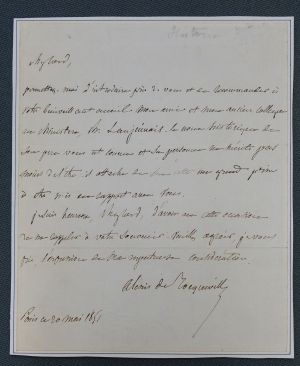 Mylord,
permettez moi d'introduire près de vous et de recommander à
votre bienveillant accueil mon ami et mon ancien collègue
au Ministère, M. Lanjuinais. Le nom historique de
son père vous est connu et sa personne ne mérite pas
moins de l'être. Il attache un grand prix
à être mis en rapport avec vous.
Je suis heureux, Mylord, d'avoir cette occasion
de me rappeler à votre souvenir. Veuillez agréer, je vous
prie, l'expression de ma respectueuse considération.
Alexis de Tocqueville
Paris ce 20 mai 1851